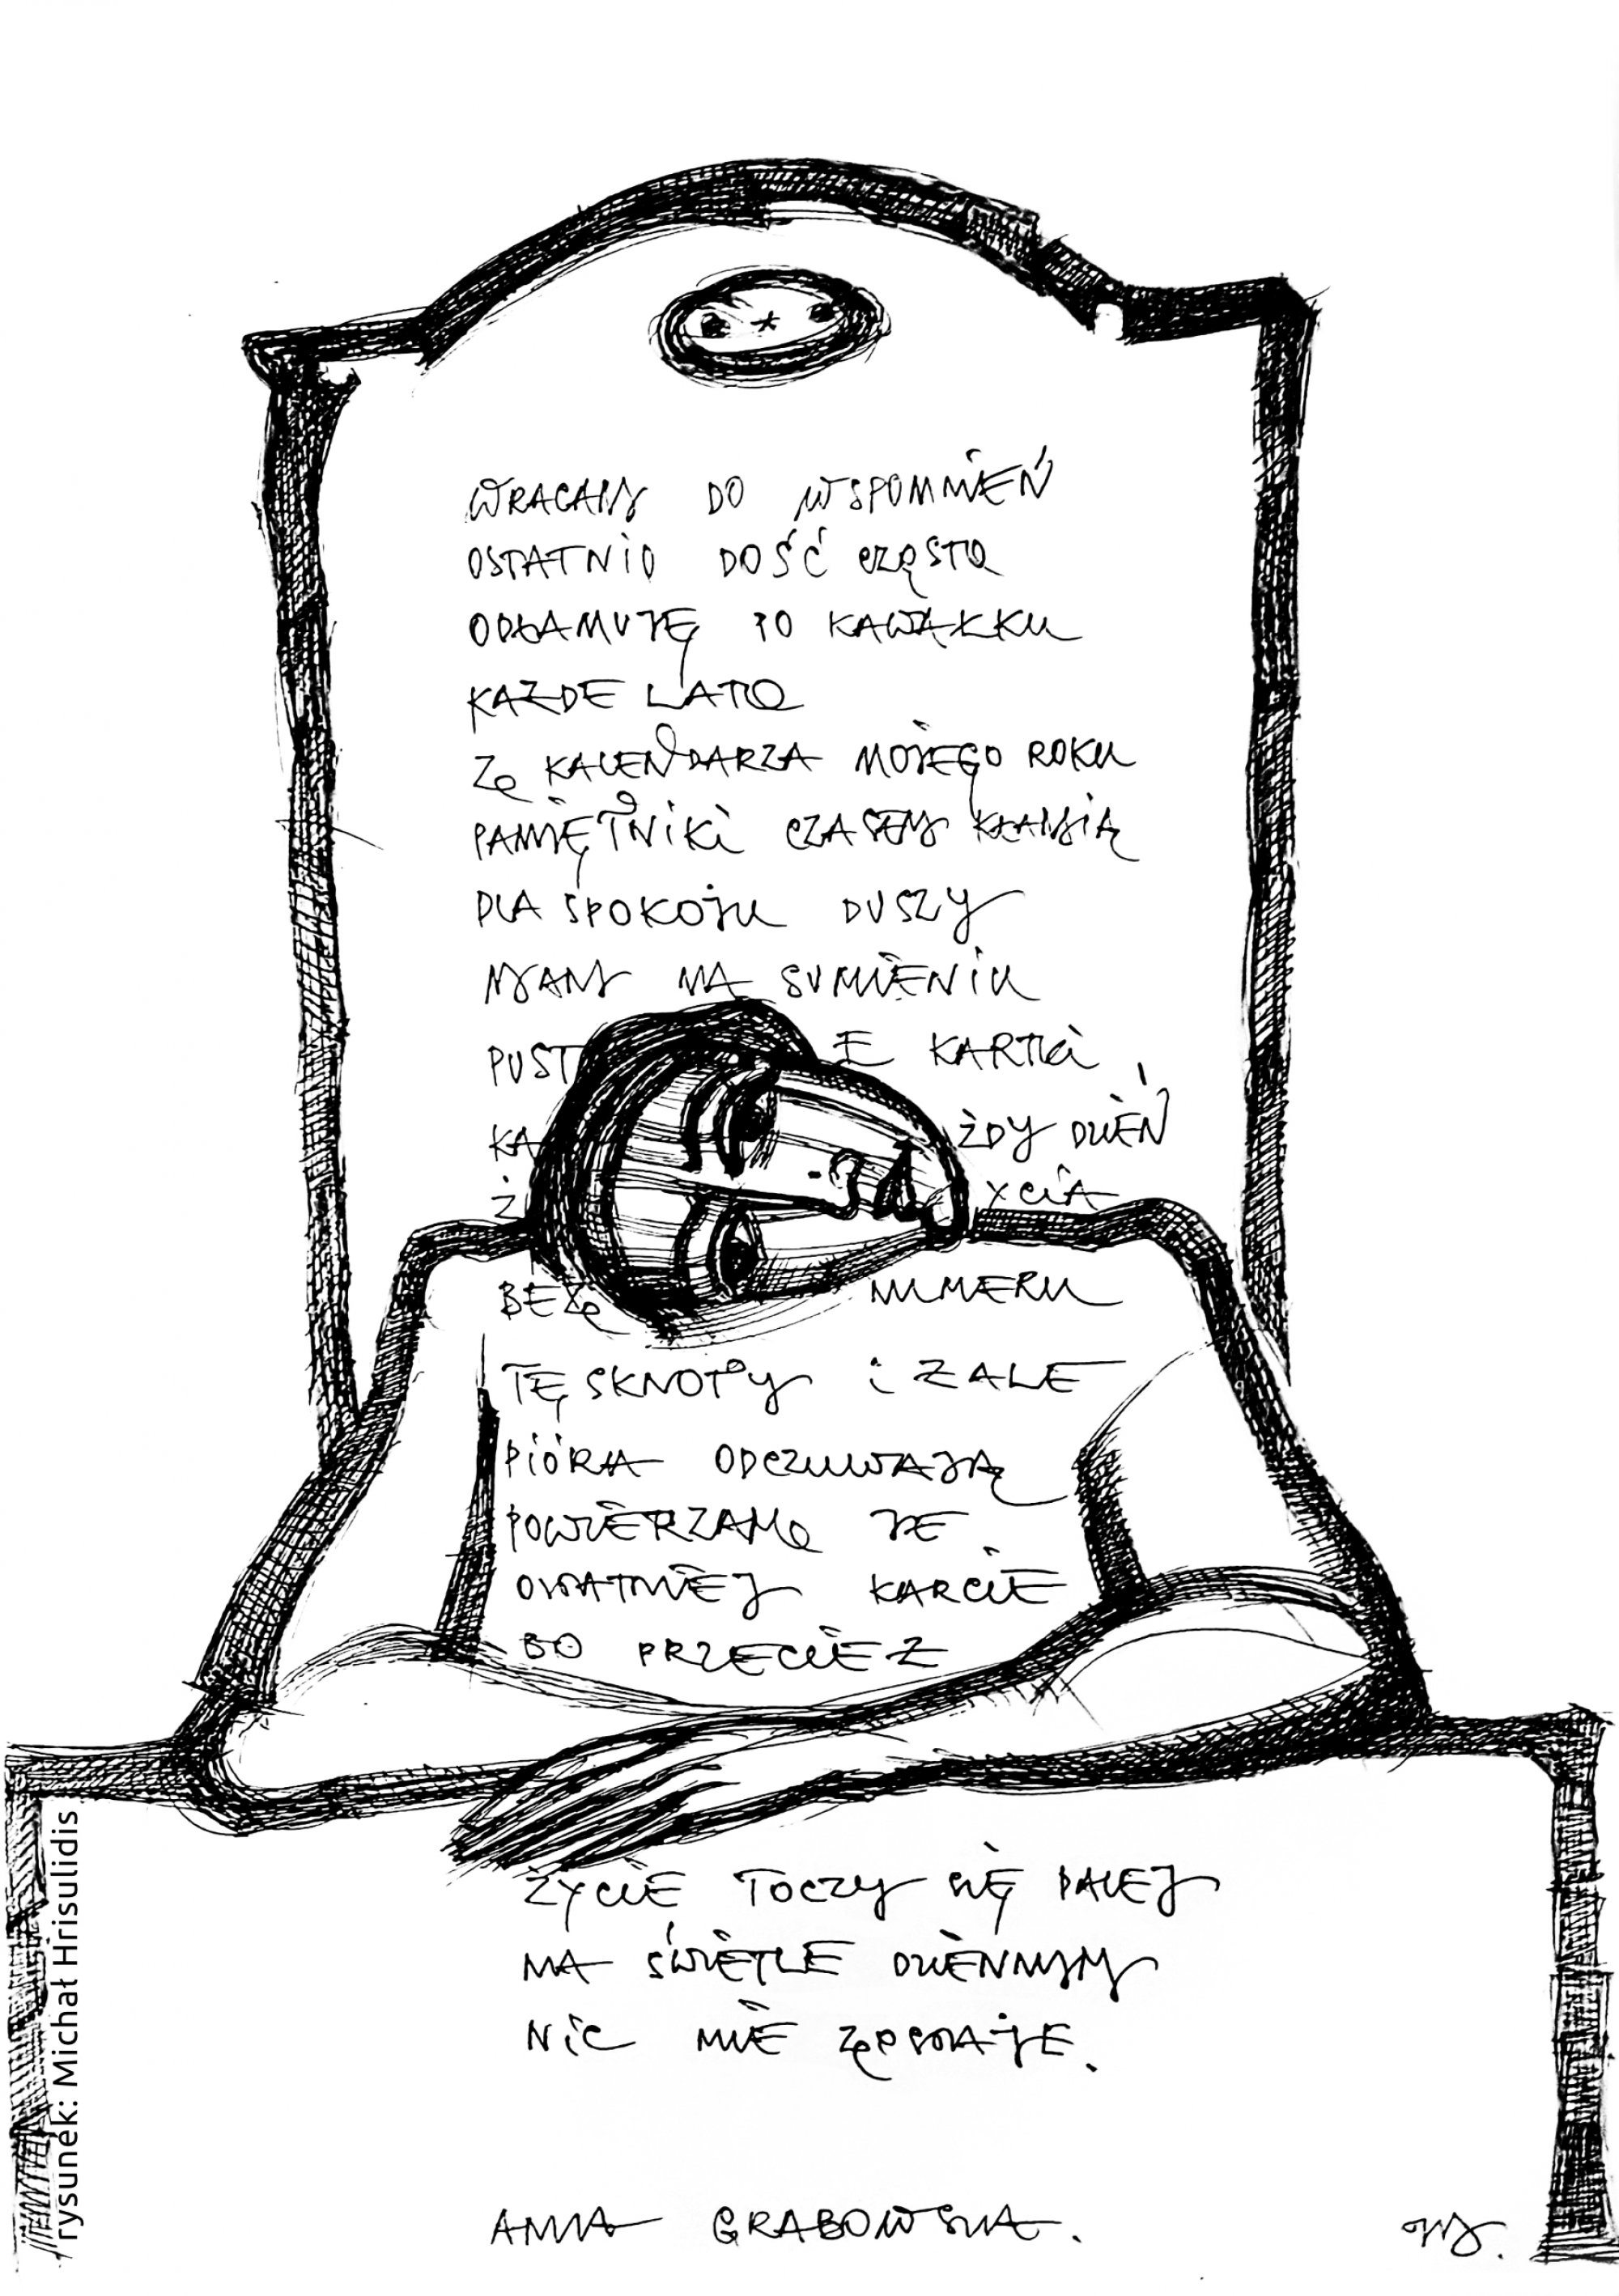 WRACAM DO WSPOMNIEŃ
OSTATNIO DOŚĆ CZĘSTO
ODŁAMUJĘ PO KAWAŁKU
KAŻDE LATO
Z KALENDARZA MOJEGO ROKU
PAMIĘTNIKI CZASEM KŁAMIĄ
DLA SPOKOJU DUSZY
MAM NA SUMIENIU
PUST E KARTKI
KA ŻDY DZIEŃ
Ż YCIA
BEZ NUMERU
TĘSKNOTY I ŻALE
PIÓRA ODCZUWAJĄ
POWIERZAM JE
OSTATNIEJ KARCIE
BO PRZECIEŻ
ŻYCIE TOCZY SIĘ DALEJ
NA ŚWIETLE DZIENNYM
NIC NIE ZOSTAJE.
ANNA GRABOWSKA.
rysunek: Michał Hrisulidis